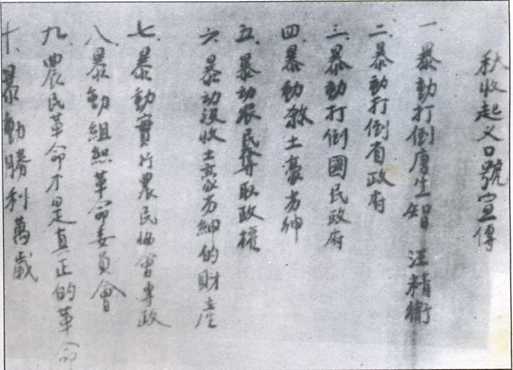 秋收起义口號宣傳
一 暴動打倒唐生智 汪精衛
二 暴動打倒省政府
三 暴動打倒國民政府
四 暴動殺土豪劣紳
五 暴动农民奪取政權
六 暴动没收土豪劣紳的財產
七 暴動實行農民協會專政
八 暴動組織革命委員會
九 農民革命才是真正的革命
十 暴動勝利萬歲